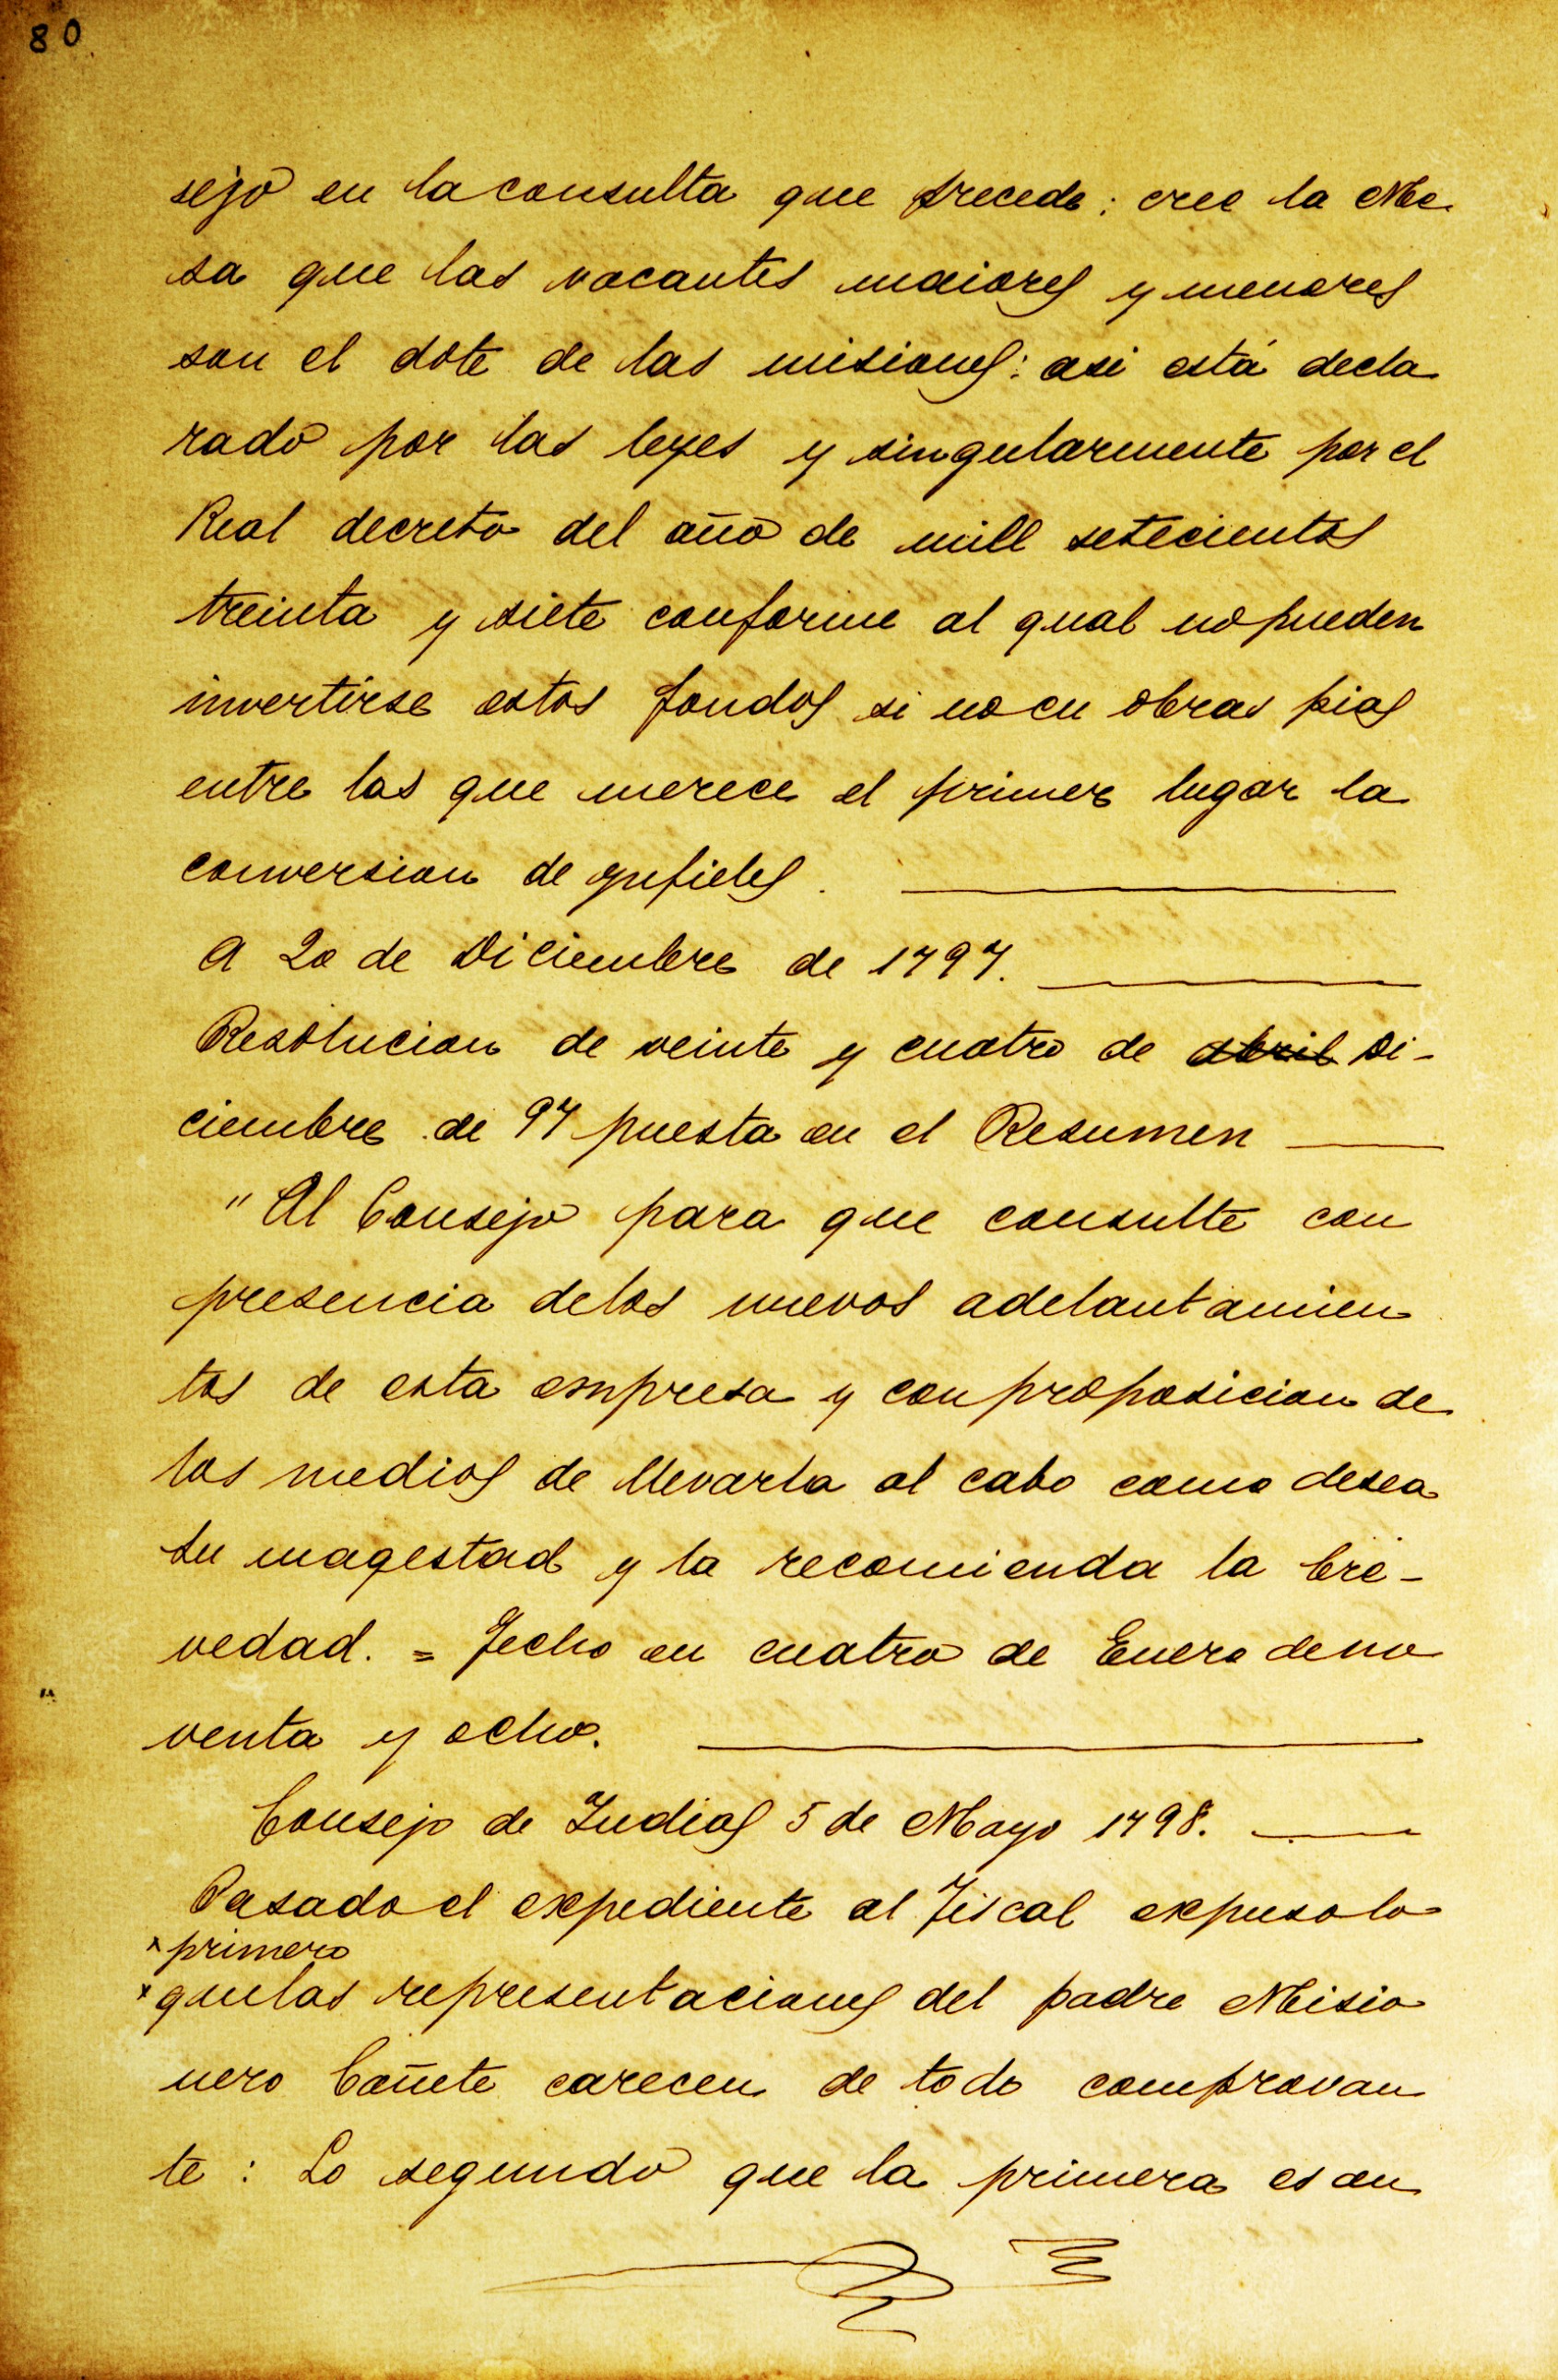 80
sejo en la consulta que precede: cree la Me
sa que las vacantes maiores y menores
son el dote de las misiones: asi está decla
rado por las leyes y singularmente por el
Real decreto del año de mill setecientos
treinta y siete conforme al qual no pueden
invertirse estos fondos si no en obras pias
entre las que merece el primer lugar la
conversion de ynfieles.
A 20 de Diciembre de 1797.
Resolucion de veinte y cuatro de abril Di-
ciembre de 97 puesta en el Resumen
"Al Consejo para que consulte con
presencia delos nuevos adelantamien
tos de esta empresa y con proposicion de
los medios de llevarla al cabo como desea
Su magestad y la recomienda la bre-
vedad. = Fecho en cuatro de Enero de no
venta y ocho.
Consejo de Indias 5 de Mayo 1798.
Pasado el expediente al Fiscal expuso lo
x primero
x quelas representaciones del padre Misio
nero Cañete carecen de todo comprovan
te: Lo segundo que la primera es en